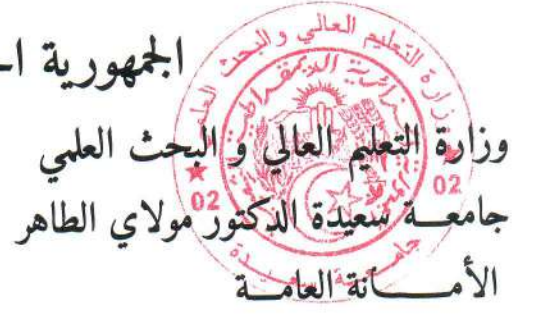 الجمهورية ا
وزارة التعليم العالي و البحث العلمي
جامعـــة سعيدة الدكتور مولاي الطاهر
الأمـــــانة العامـــة
وزارة التعليم العالي و البحث العلمي
02
02
جامعـة سعيـدة